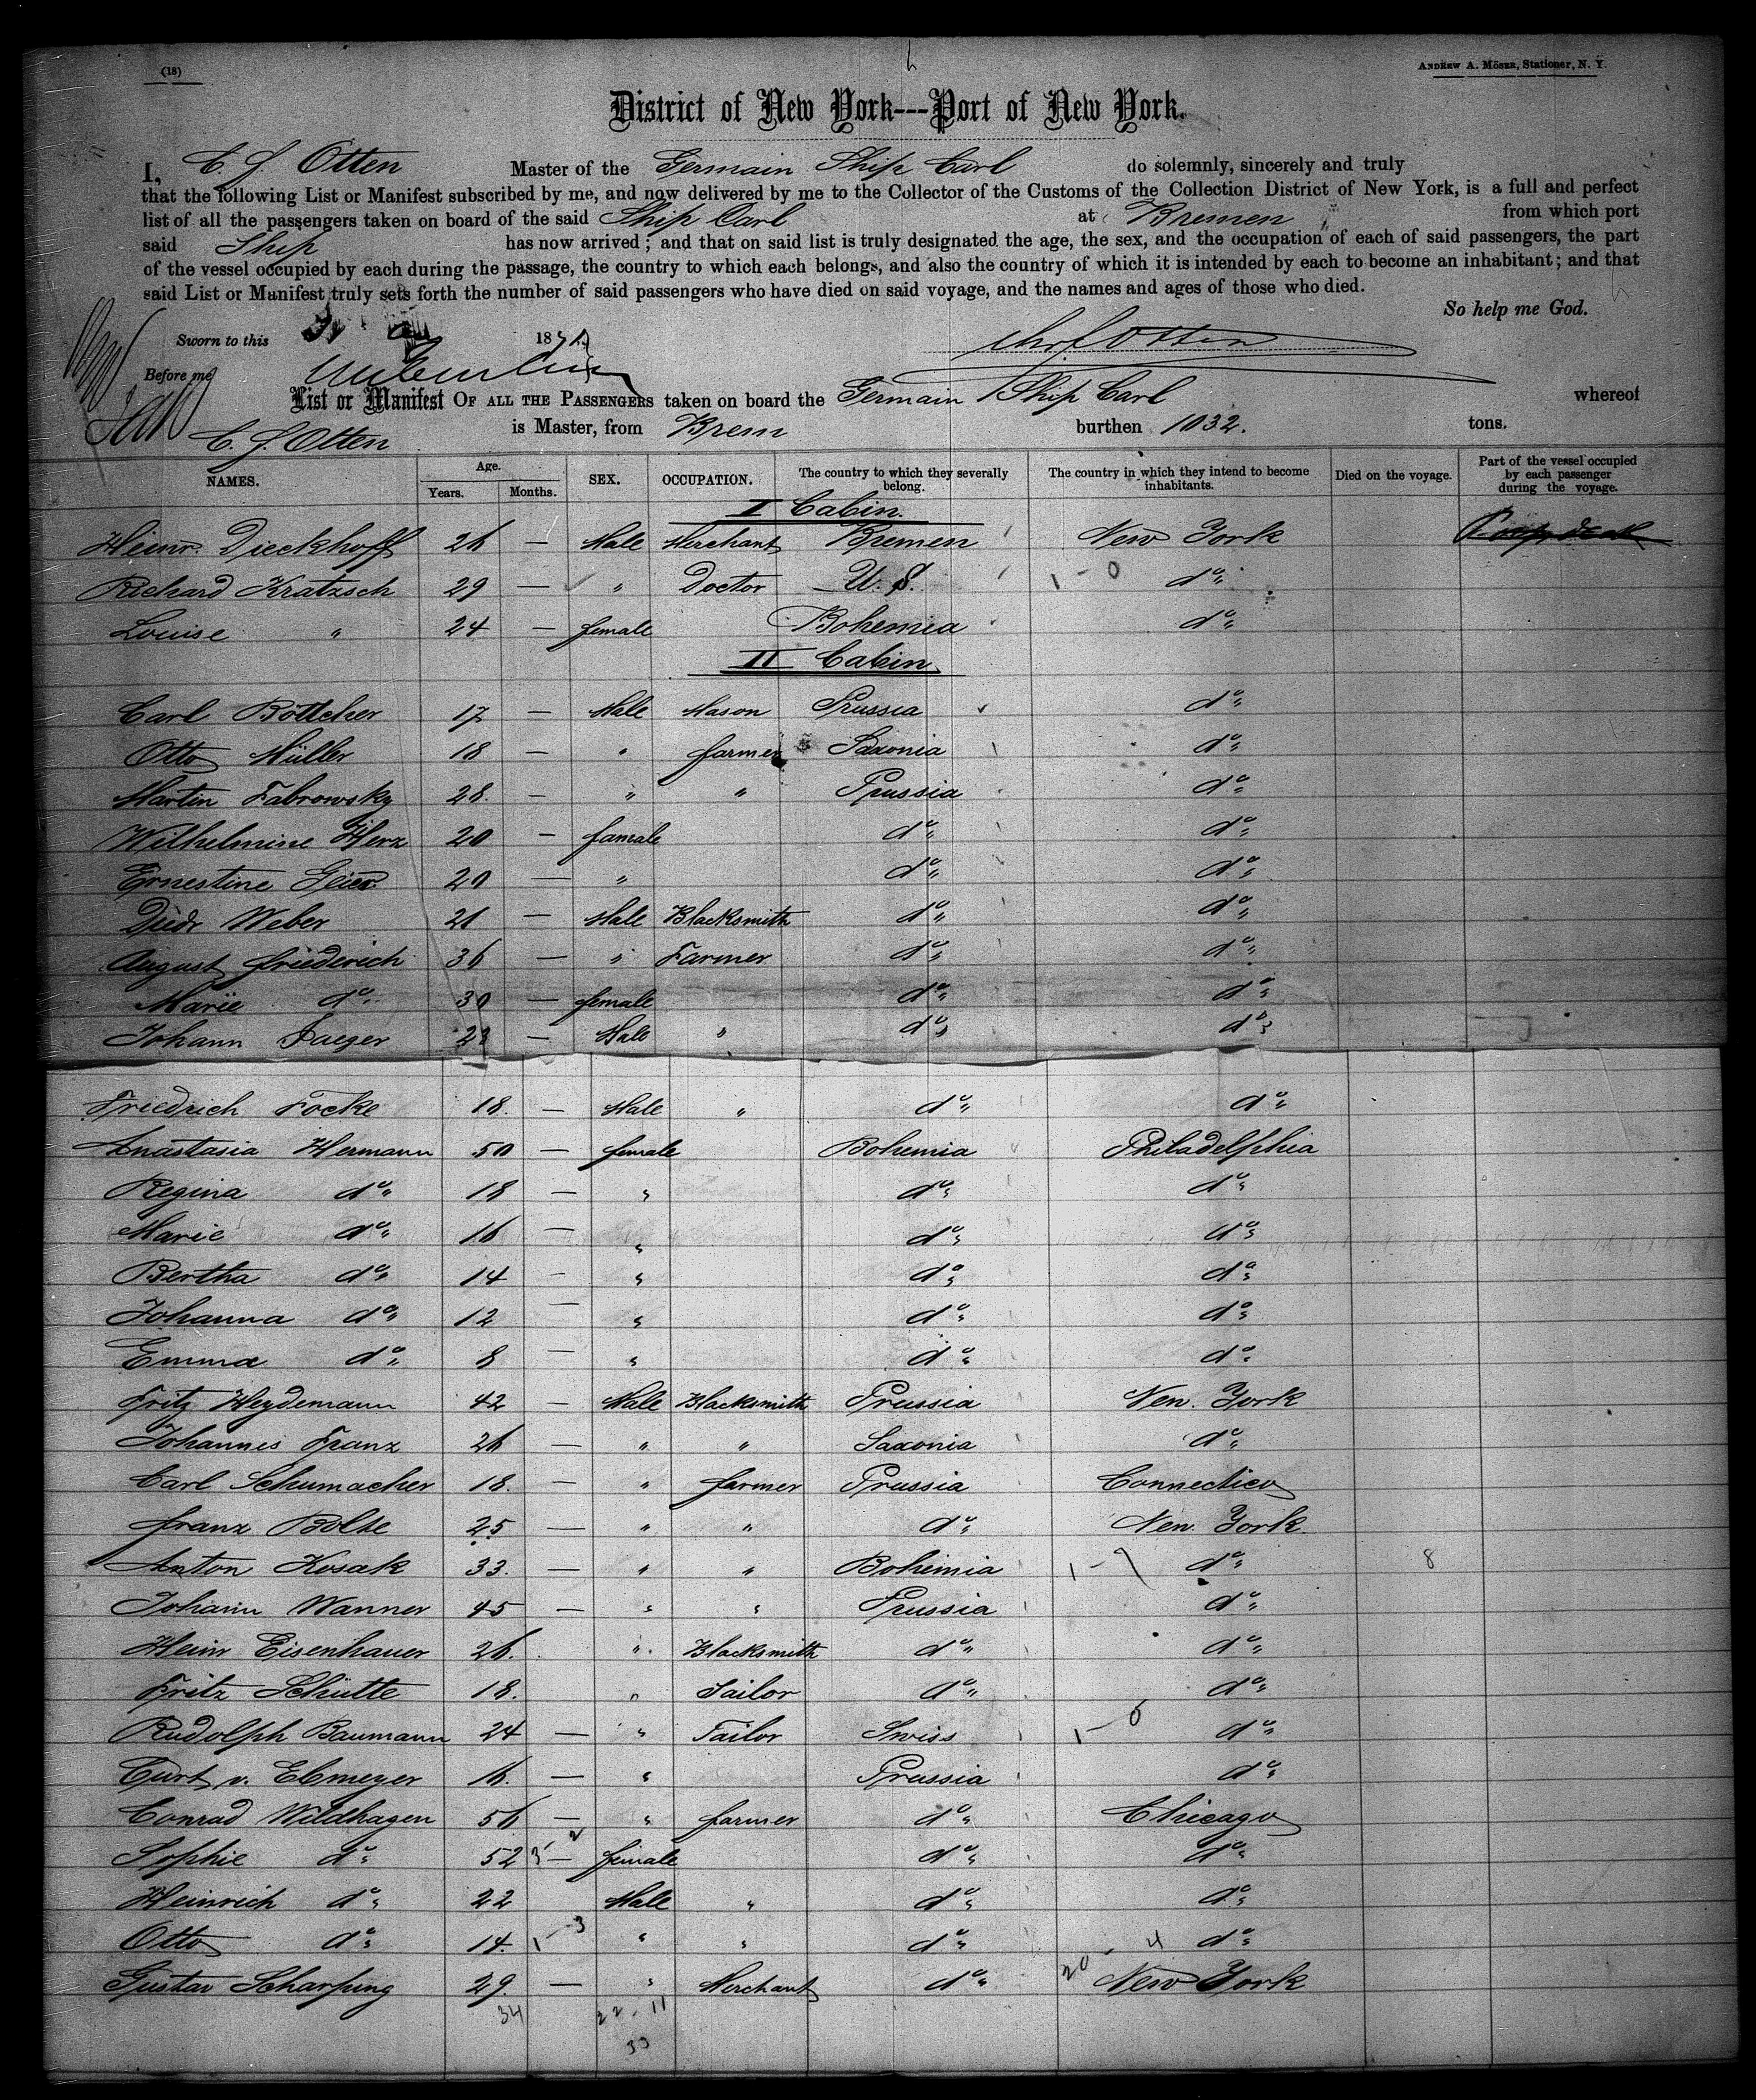 (18)
ANDREW A. MÖSER, Stationer, N. Y.
District of New York---Port of New York.
I, C. J. Otten Master of the Germain Ship Carl do solemnly, sincerely and truly
that the following List or Manifest subscribed by me, and now delivered by me to the Collector of the Customs of the Collection District of New York, is a full and perfect
list of all the passengers taken on board of the said Ship Carl at Bremen from which port
said Ship has now arrived; and that on said list is truly designated the age, the sex, and the occupation of each of said passengers, the part
of the vessel occupied by each during the passage, the country to which each belongs, and also the country of which it is intended by each to become an inhabitant; and that
said List or Manifest truly sets forth the number of said passengers who have died on said voyage, and the names and ages of those who died.
So help me God.
Sworn to this 18
Before me
List or Manifest OF ALL THE PASSENGERS taken on board the Germain Ship Carl whereof
C. J. Otten is Master, from Brem burthen 1032. tons.
NAMES. Age. Years. Months. SEX. OCCUPATION. The country to which they severally belong. The country in which they intend to become inhabitants. Died on the voyage. Part of the vessel occupied by each passenger during the voyage.
I Cabin.
Heinr. Dieckhoff 26 — Male Merchant Bremen New York
Richard Kratzsch 29 — " Doctor U. S. 1 - 0 do"
Louise " 24 — female Bohemia do"
II Cabin
Carl Böttcher 17 — Male Mason Prussia do"
Otto Müller 18 — " farmer Saxonia do"
Martin Fabrowsky 28. — " " Prussia do"
Wilhelmine Herz 20 — famale do" do"
Ernestine Geier 20 — " do" do"
Diedr Weber 21 — Male Blacksmith do" do"
August Friederich 36 — " Farmer do" do"
Marie do" 30 — female do" do"
Johann Jaeger 28 — Male " do" do"
Friedrich Focke 18. — Male " do" do"
Anastasia Hermann 50 — female Bohemia Philadelphia
Regina do" 18 — " do" do"
Marie do" 16 — " do" do"
Bertha do" 14 — " do" do"
Johanna do" 12 — " do" do"
Emma do" 8 — " do" do"
Fritz Heydemann 42 — Male Blacksmith Prussia New. York
Johannes Franz 26 — " " Saxonia do"
Carl Schumacher 18. — " farmer Prussia Connecticu
Franz Bolte 25 — " " do" New York.
Anton Kosak 33. — " " Bohemia do" 8
Johann Wanner 45 — " " Prussia do"
Heinr Eisenhauer 26. " Blacksmith do" do"
Fritz Schütte 18. " Sailor do" do"
Rudolph Baumann 24 — " Tailor Swiss 1 - 0 do"
Curt v. Ebmeyer 16. — " Prussia do"
Conrad Wildhagen 56 — " farmer do" Chicago
Sophie do" 52 — female do" do"
Heinrich do" 22 Male " do" do"
Otto do" 14. 1 - 3 " " do" 4 do"
Gustav Scharfung 29. — " Merchant do" 20 New York
34 22 - 11
33